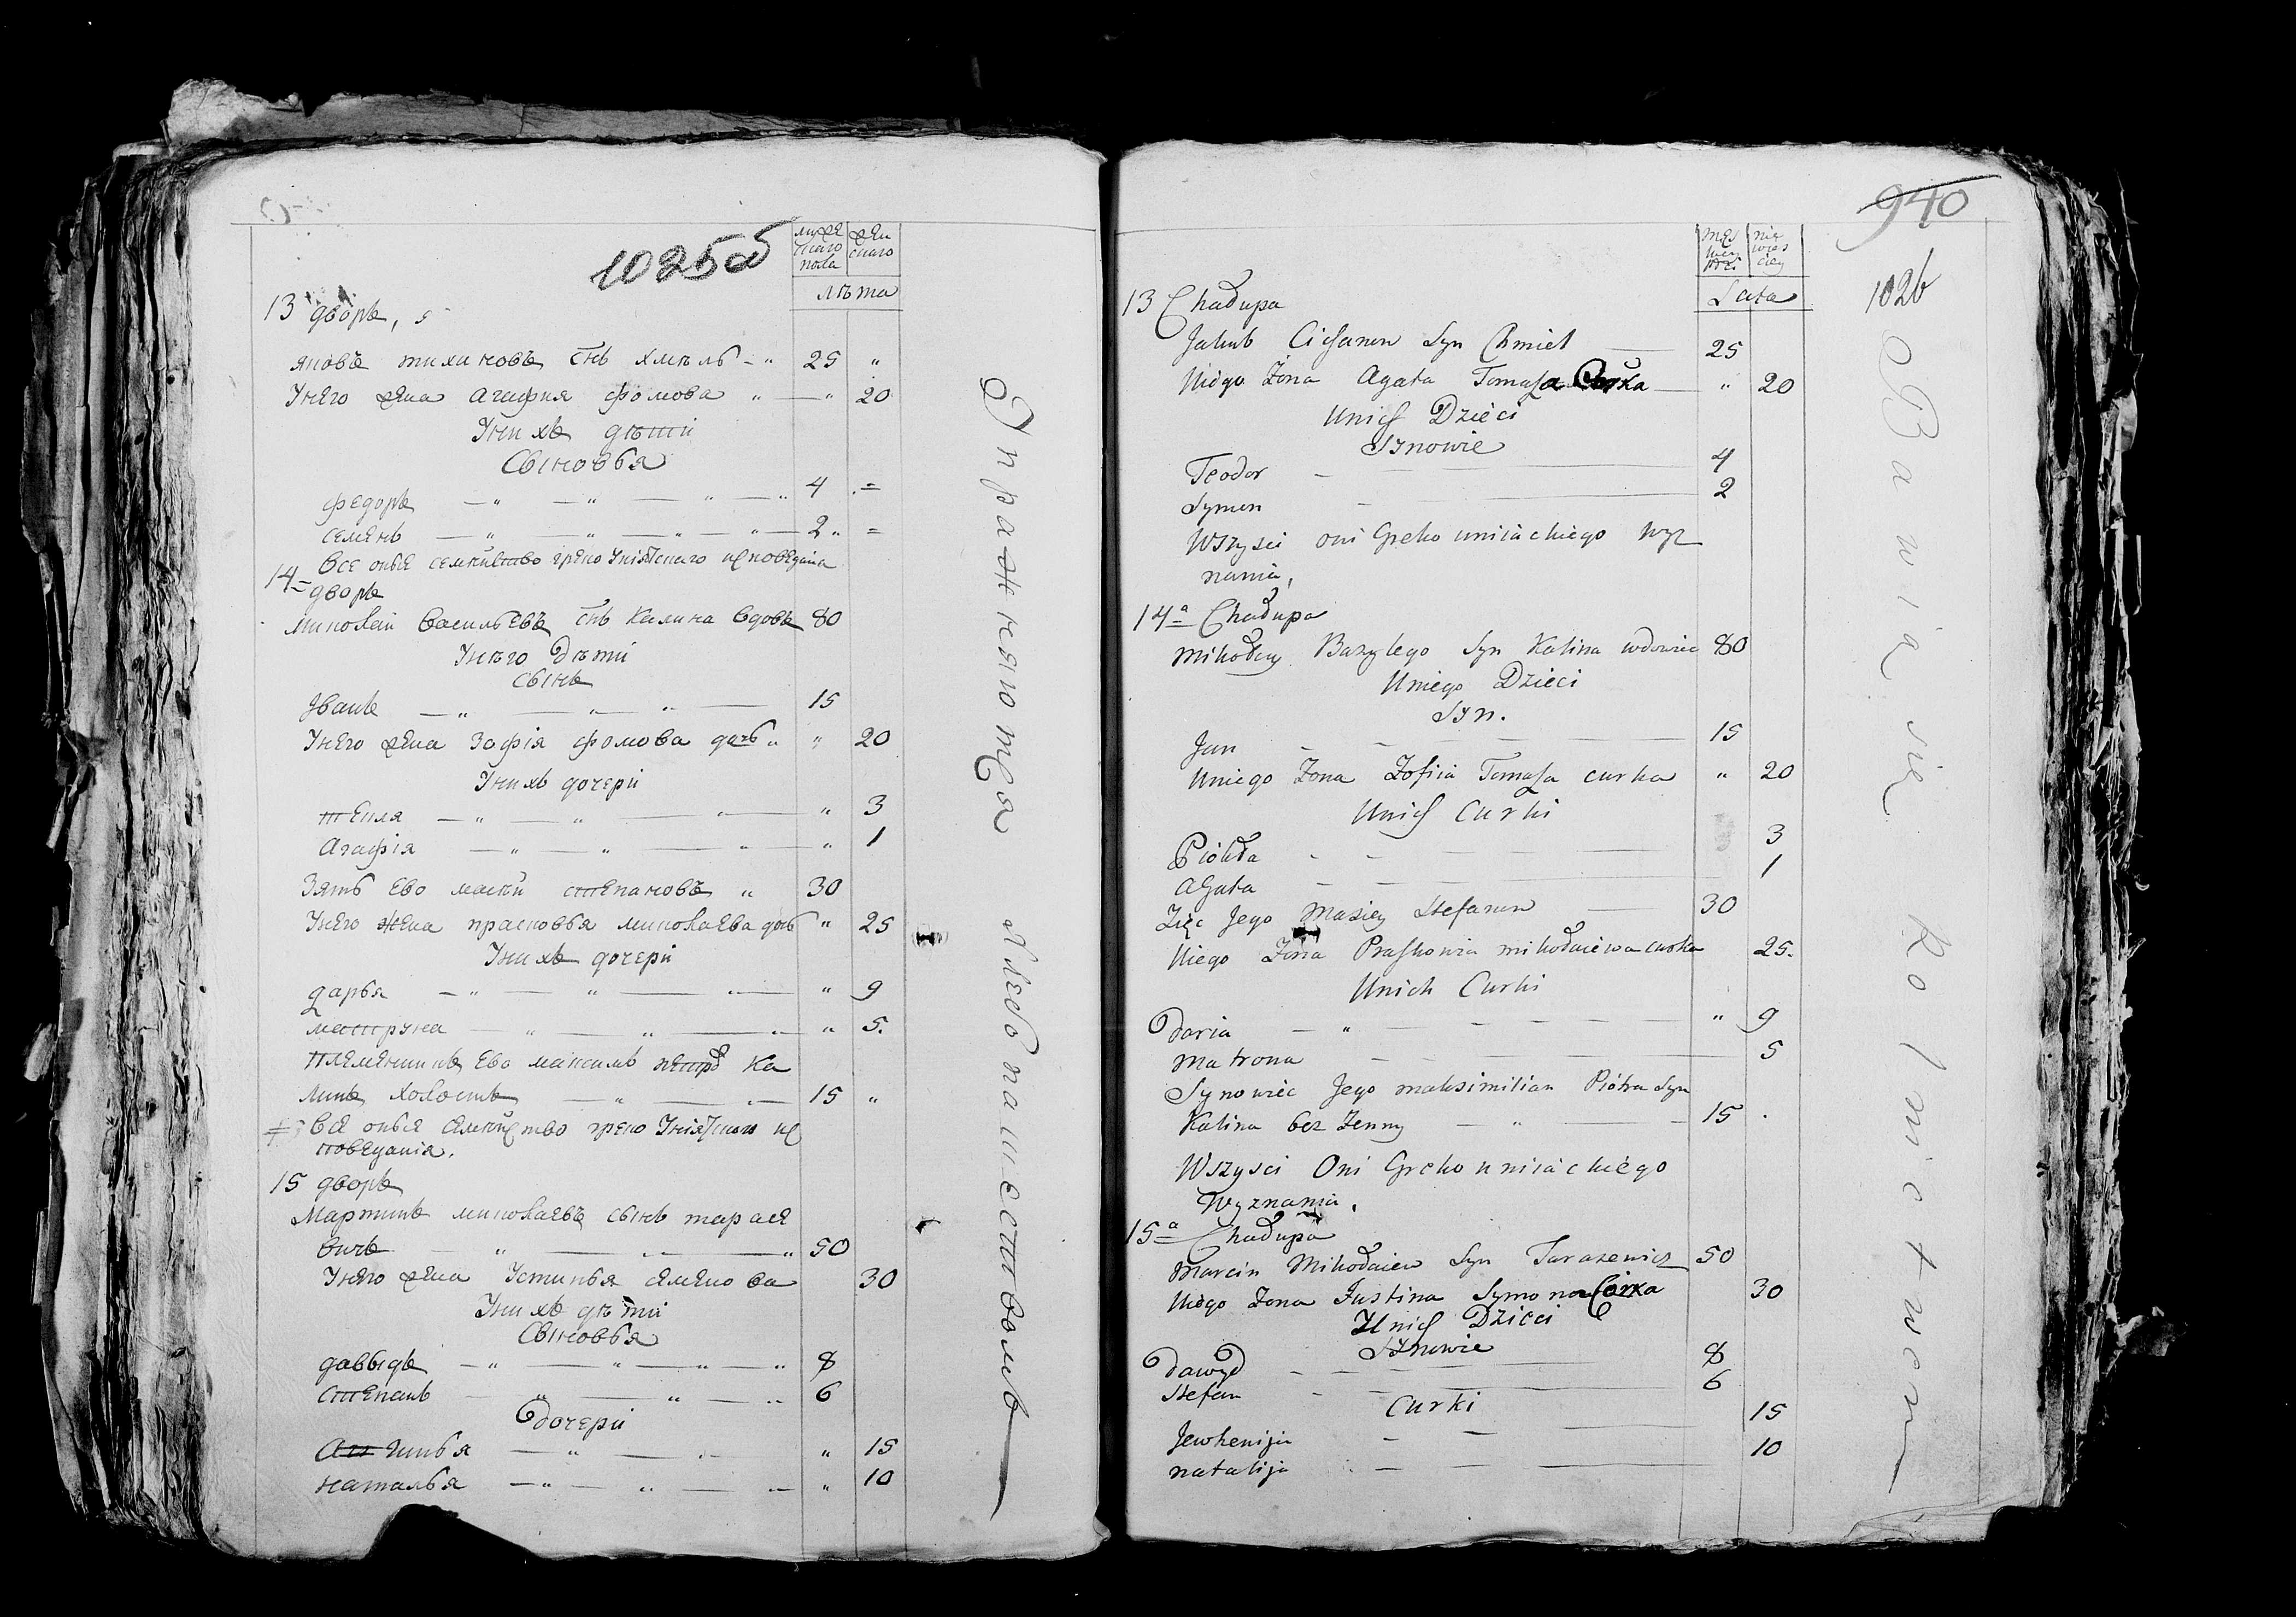 1025 об
мужескаго пола
женскаго
лѣта
13 дворъ,
яковъ тихановъ снъ хмѣль 25
Унего жена агафия фомова 20
Унихъ дѣти
Сыновья
федоръ 4
семенъ 2
все оные семейство греко Униятскаго исповеданиа
14 дворъ
миколай васильевъ снъ калина вдовъ 80
Унѣго Дѣти
сынъ
Иванъ 15
Унего жена Зофія фомова дочь 20
Унихъ дочери
текля 3
Агафія 1
Зять ево матѣй степановъ 30
Унего жена прасковья миколаева дочь 25
Унихъ дочери
дарья 9
матруна 5.
племенникъ Ево максимъ петра ка
линъ холостъ 15
все оные семейство греко Униятского ис
поведания.
15 дворъ
Мартинъ миколаевъ сынъ тарасе
вичъ 50
Унего жена Устинья семенова 30
Унихъ дѣти
Сыновья
давыдъ 8
степанъ 6
дочери
наталья 10
Упражняютца хлебопашествомъ
940
1026
Lata
13 Chałupa
Jakub Cichanow Syn Chmiel 25
Uniego Zona Agata Tomasza Curka 20
Unich Dzieci
Synowie
Teodor 4
Symon 2
Wszysci oni Greko uniiackiego wyz
nania,
14a Chałupa
mikołay Bazylego Syn Kalina wdowiec 80
Uniego Dzieci
Syn.
Jan 15
Uniego Zona Zofiia Tomasza curka 20
Unich Curki
Piokła 3
Agata 1
Zięc Jego Maziey Stefanow 30
Uniego Zona Praskowia mikołaiewa curka 25.
Unich Curki
Daria 9
matrona 5
Synowiec Jego maksimilian Piotra Syn
Kalina bez Zenny 15
Wszysci Oni Greko uniiackiego
Wyznania.
15a Chałupa
Marcin Mikołaiew Syn Tarazewicz 50
Uniego Zona Justina Symona Corka 30
Unich Dzieci
Synowie
Dawyd 8
Stefan 6
Curki
Jewhenija 15
natalija 10
Bawią się Rolnictwem